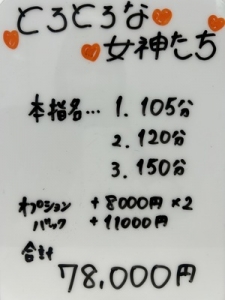 とろとろな
女神たち
本指名… 1. 105分
2. 120分
3. 150分
オプション +8000円 ×2
バック +11000円
合計
78,000円